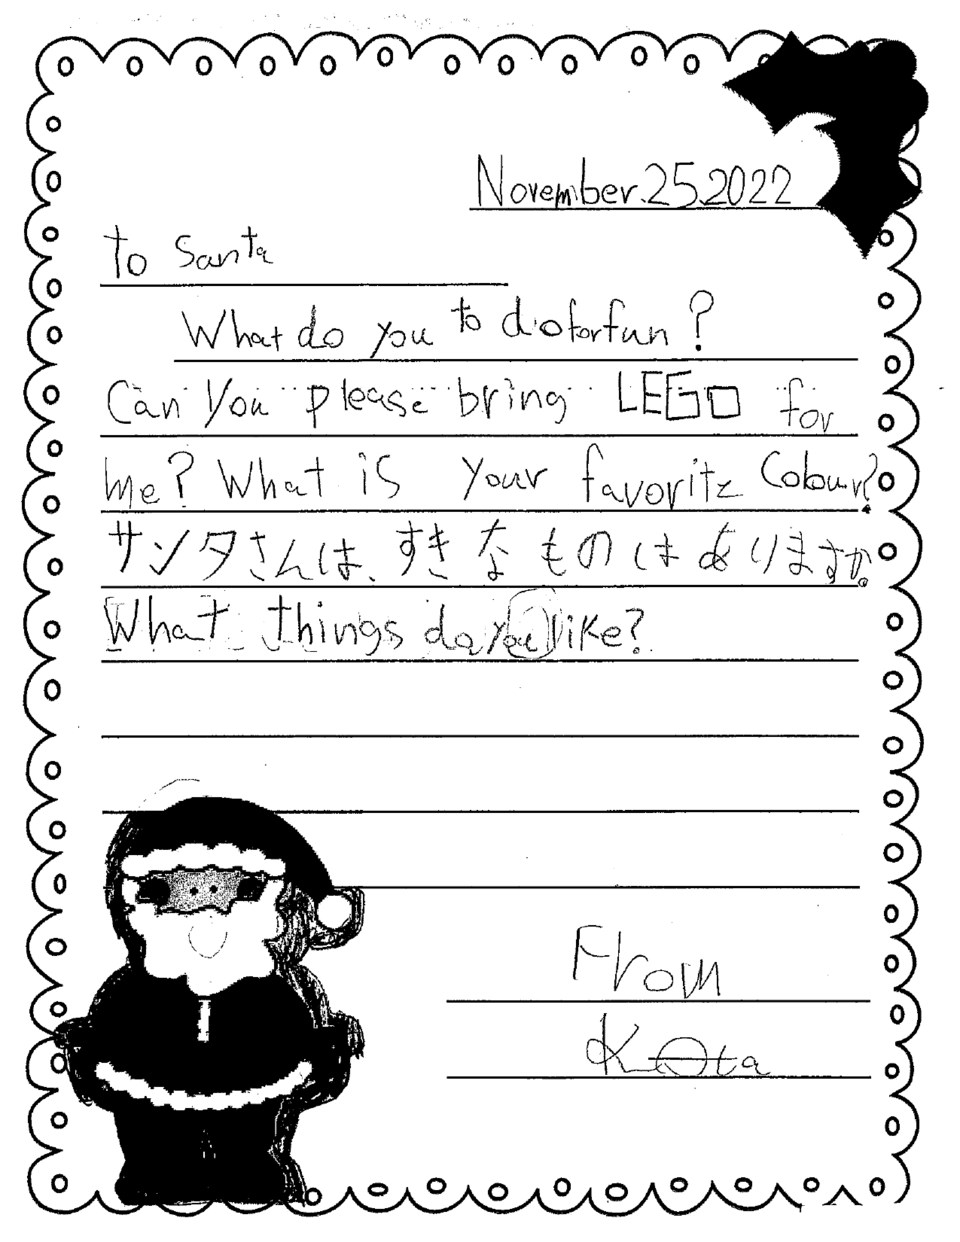 November.25.2022
to Santa
What do you to do for fun?
Can you please bring LEGO for
me? What is your favorite Colour?
サンタさんは、すきなものはありますか。
What things do you like?
From
Kota